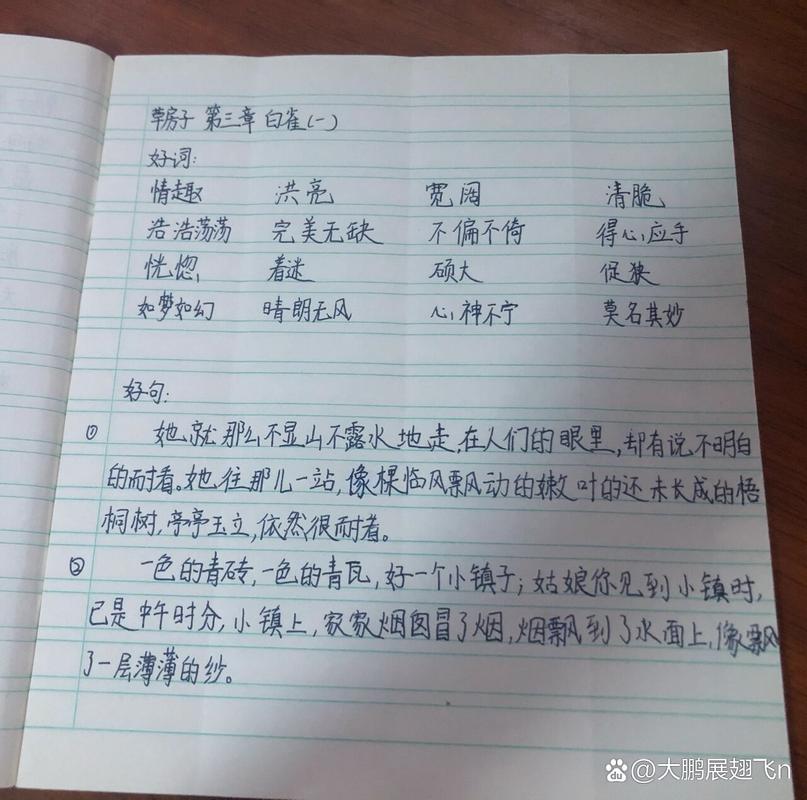 草房子 第三章 白雀(一)
好词:
情趣 洪亮 宽阔 清脆
浩浩荡荡 完美无缺 不偏不倚 得心应手
恍惚 着迷 硕大 促狭
如梦如幻 晴朗无风 心神不宁 莫名其妙
好句:
① 她就那么不显山不露水地走,在人们的眼里,却有说不明白
的耐看。她往那儿一站,像棵临风飘动的嫩叶的还未长成的梧
桐树,亭亭玉立,依然很耐看。
② 一色的青砖,一色的青瓦,好一个小镇子;姑娘你见到小镇时,
已是中午时分,小镇上,家家烟囱冒了烟,烟飘到了水面上,像飘
了一层薄薄的纱。
du @大鹏展翅飞n